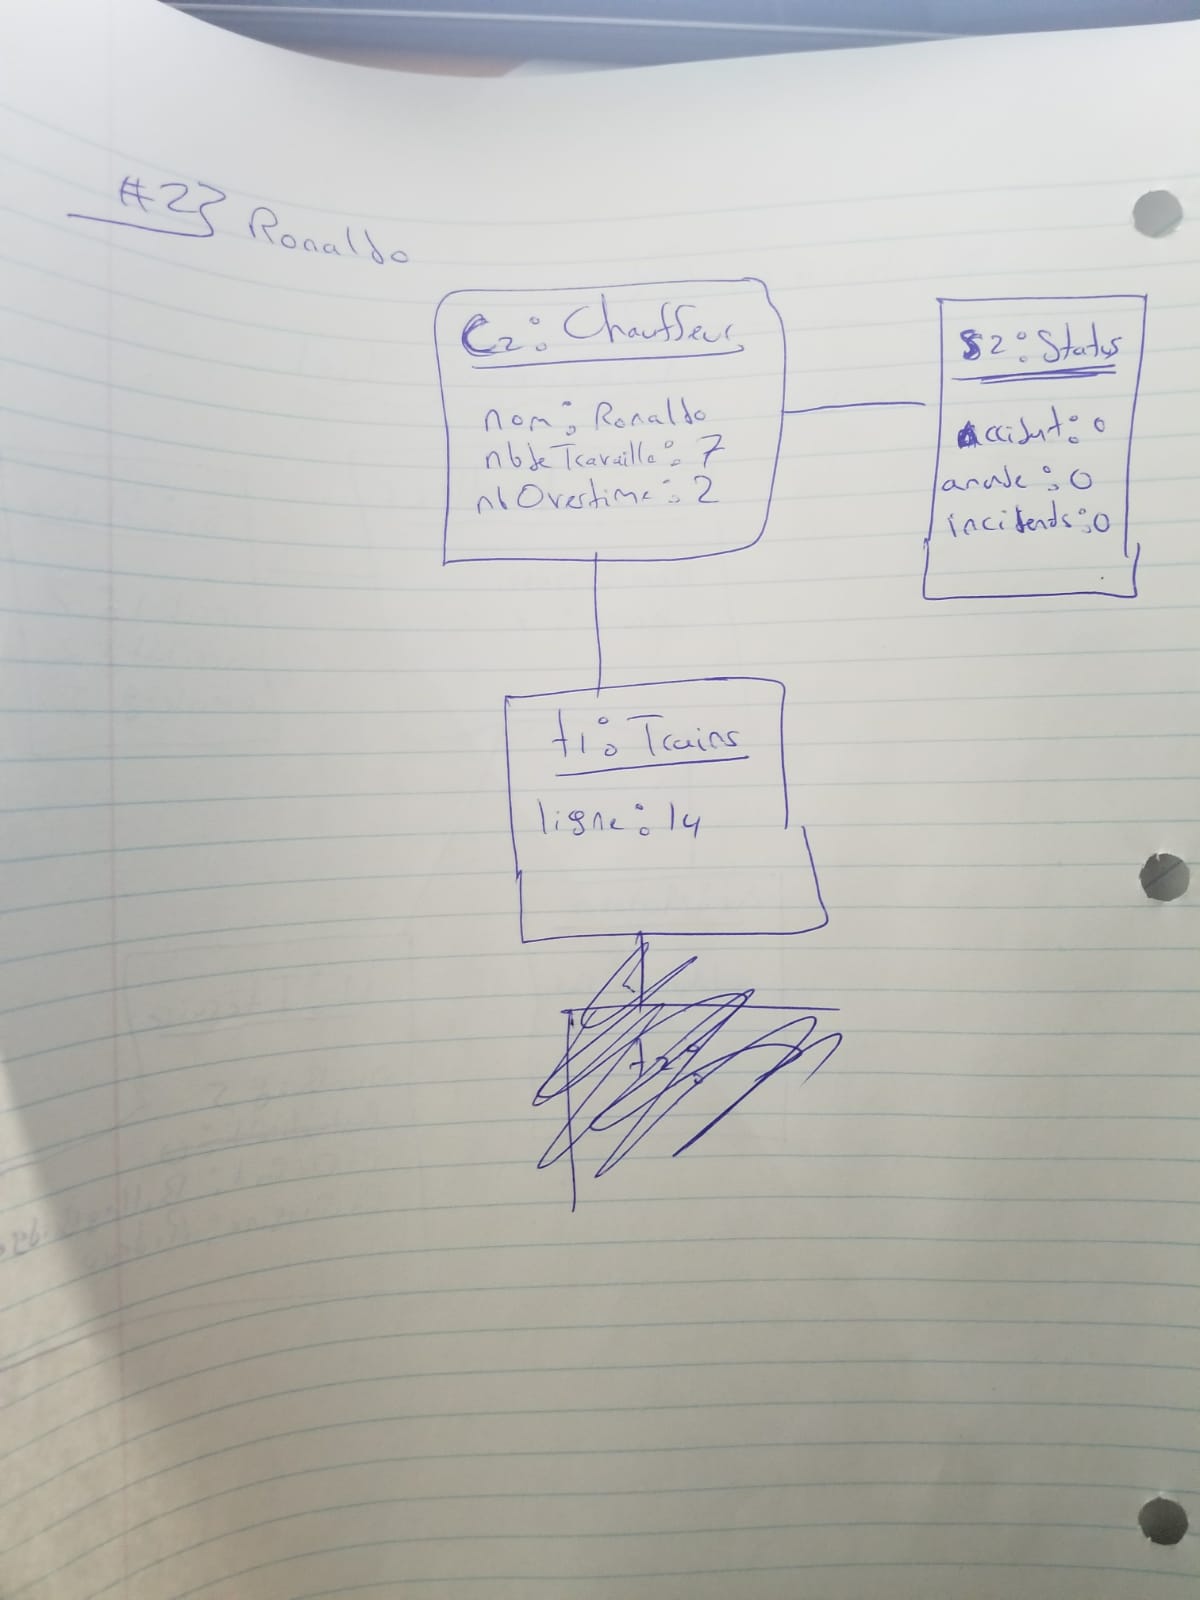 #23 Ronaldo
C2: Chauffeur
nom: Ronaldo
nbdeTravaille: 7
nbOvertime: 2
S2: Status
Accident: 0
amende: 0
incidends: 0
t1: Trains
ligne: 14